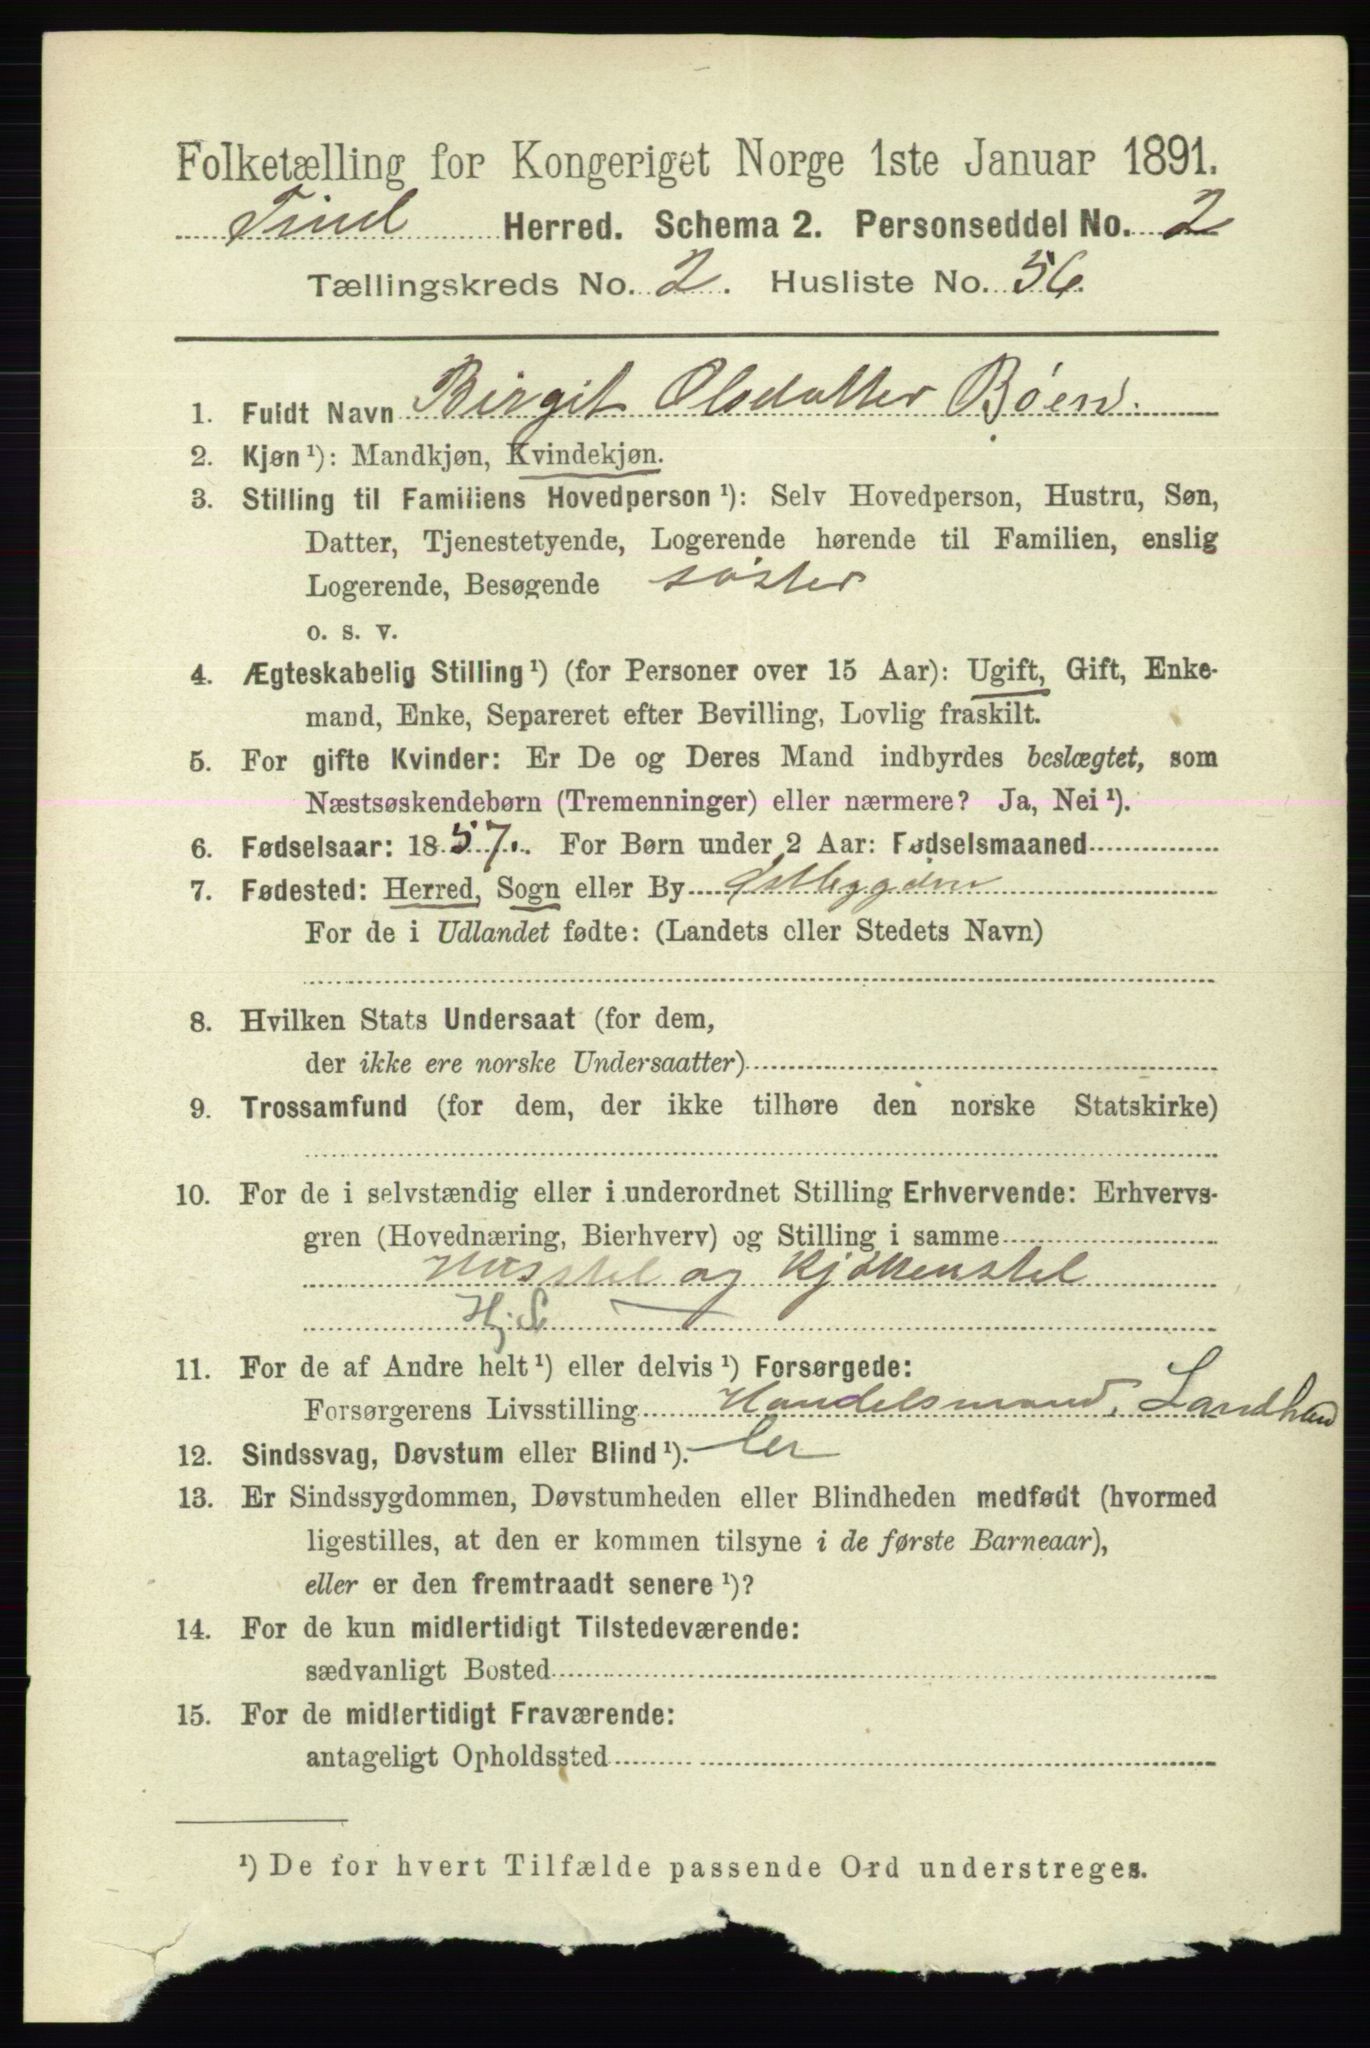 Folketælling for Kongeriget Norge 1ste Januar 1891.
Tind Herred. Schema 2. Personseddel No. 2
Tællingskreds No. 2. Husliste No. 56.
1. Fuldt Navn Birgit Olsdatter Bøen.
2. Kjøn ¹): Mandkjøn, Kvindekjøn.
3. Stilling til Familiens Hovedperson ¹): Selv Hovedperson, Hustru, Søn,
Datter, Tjenestetyende, Logerende hørende til Familien, enslig
Logerende, Besøgende søster
o. s. v.
4. Ægteskabelig Stilling ¹) (for Personer over 15 Aar): Ugift, Gift, Enke-
mand, Enke, Separeret efter Bevilling, Lovlig fraskilt.
5. For gifte Kvinder: Er De og Deres Mand indbyrdes beslægtet, som
Næstsøskendebørn (Tremenninger) eller nærmere? Ja, Nei ¹).
6. Fødselsaar: 1857. For Børn under 2 Aar: Fødselsmaaned
7. Fødested: Herred, Sogn eller By
For de i Udlandet fødte: (Landets eller Stedets Navn)
8. Hvilken Stats Undersaat (for dem,
der ikke ere norske Undersaatter)
9. Trossamfund (for dem, der ikke tilhøre den norske Statskirke)
10. For de i selvstændig eller i underordnet Stilling Erhvervende: Erhvervs-
gren (Hovednæring, Bierhverv) og Stilling i samme
Husstel og Kjøkkenstel
11. For de af Andre helt ¹) eller delvis ¹) Forsørgede:
Forsørgerens Livsstilling Handelsmand, Landhand
12. Sindssvag, Døvstum eller Blind ¹). ler
13. Er Sindssygdommen, Døvstumheden eller Blindheden medfødt (hvormed
ligestilles, at den er kommen tilsyne i de første Barneaar),
eller er den fremtraadt senere ¹)?
14. For de kun midlertidigt Tilstedeværende:
sædvanligt Bosted
15. For de midlertidigt Fraværende:
antageligt Opholdssted
¹) De for hvert Tilfælde passende Ord understreges.